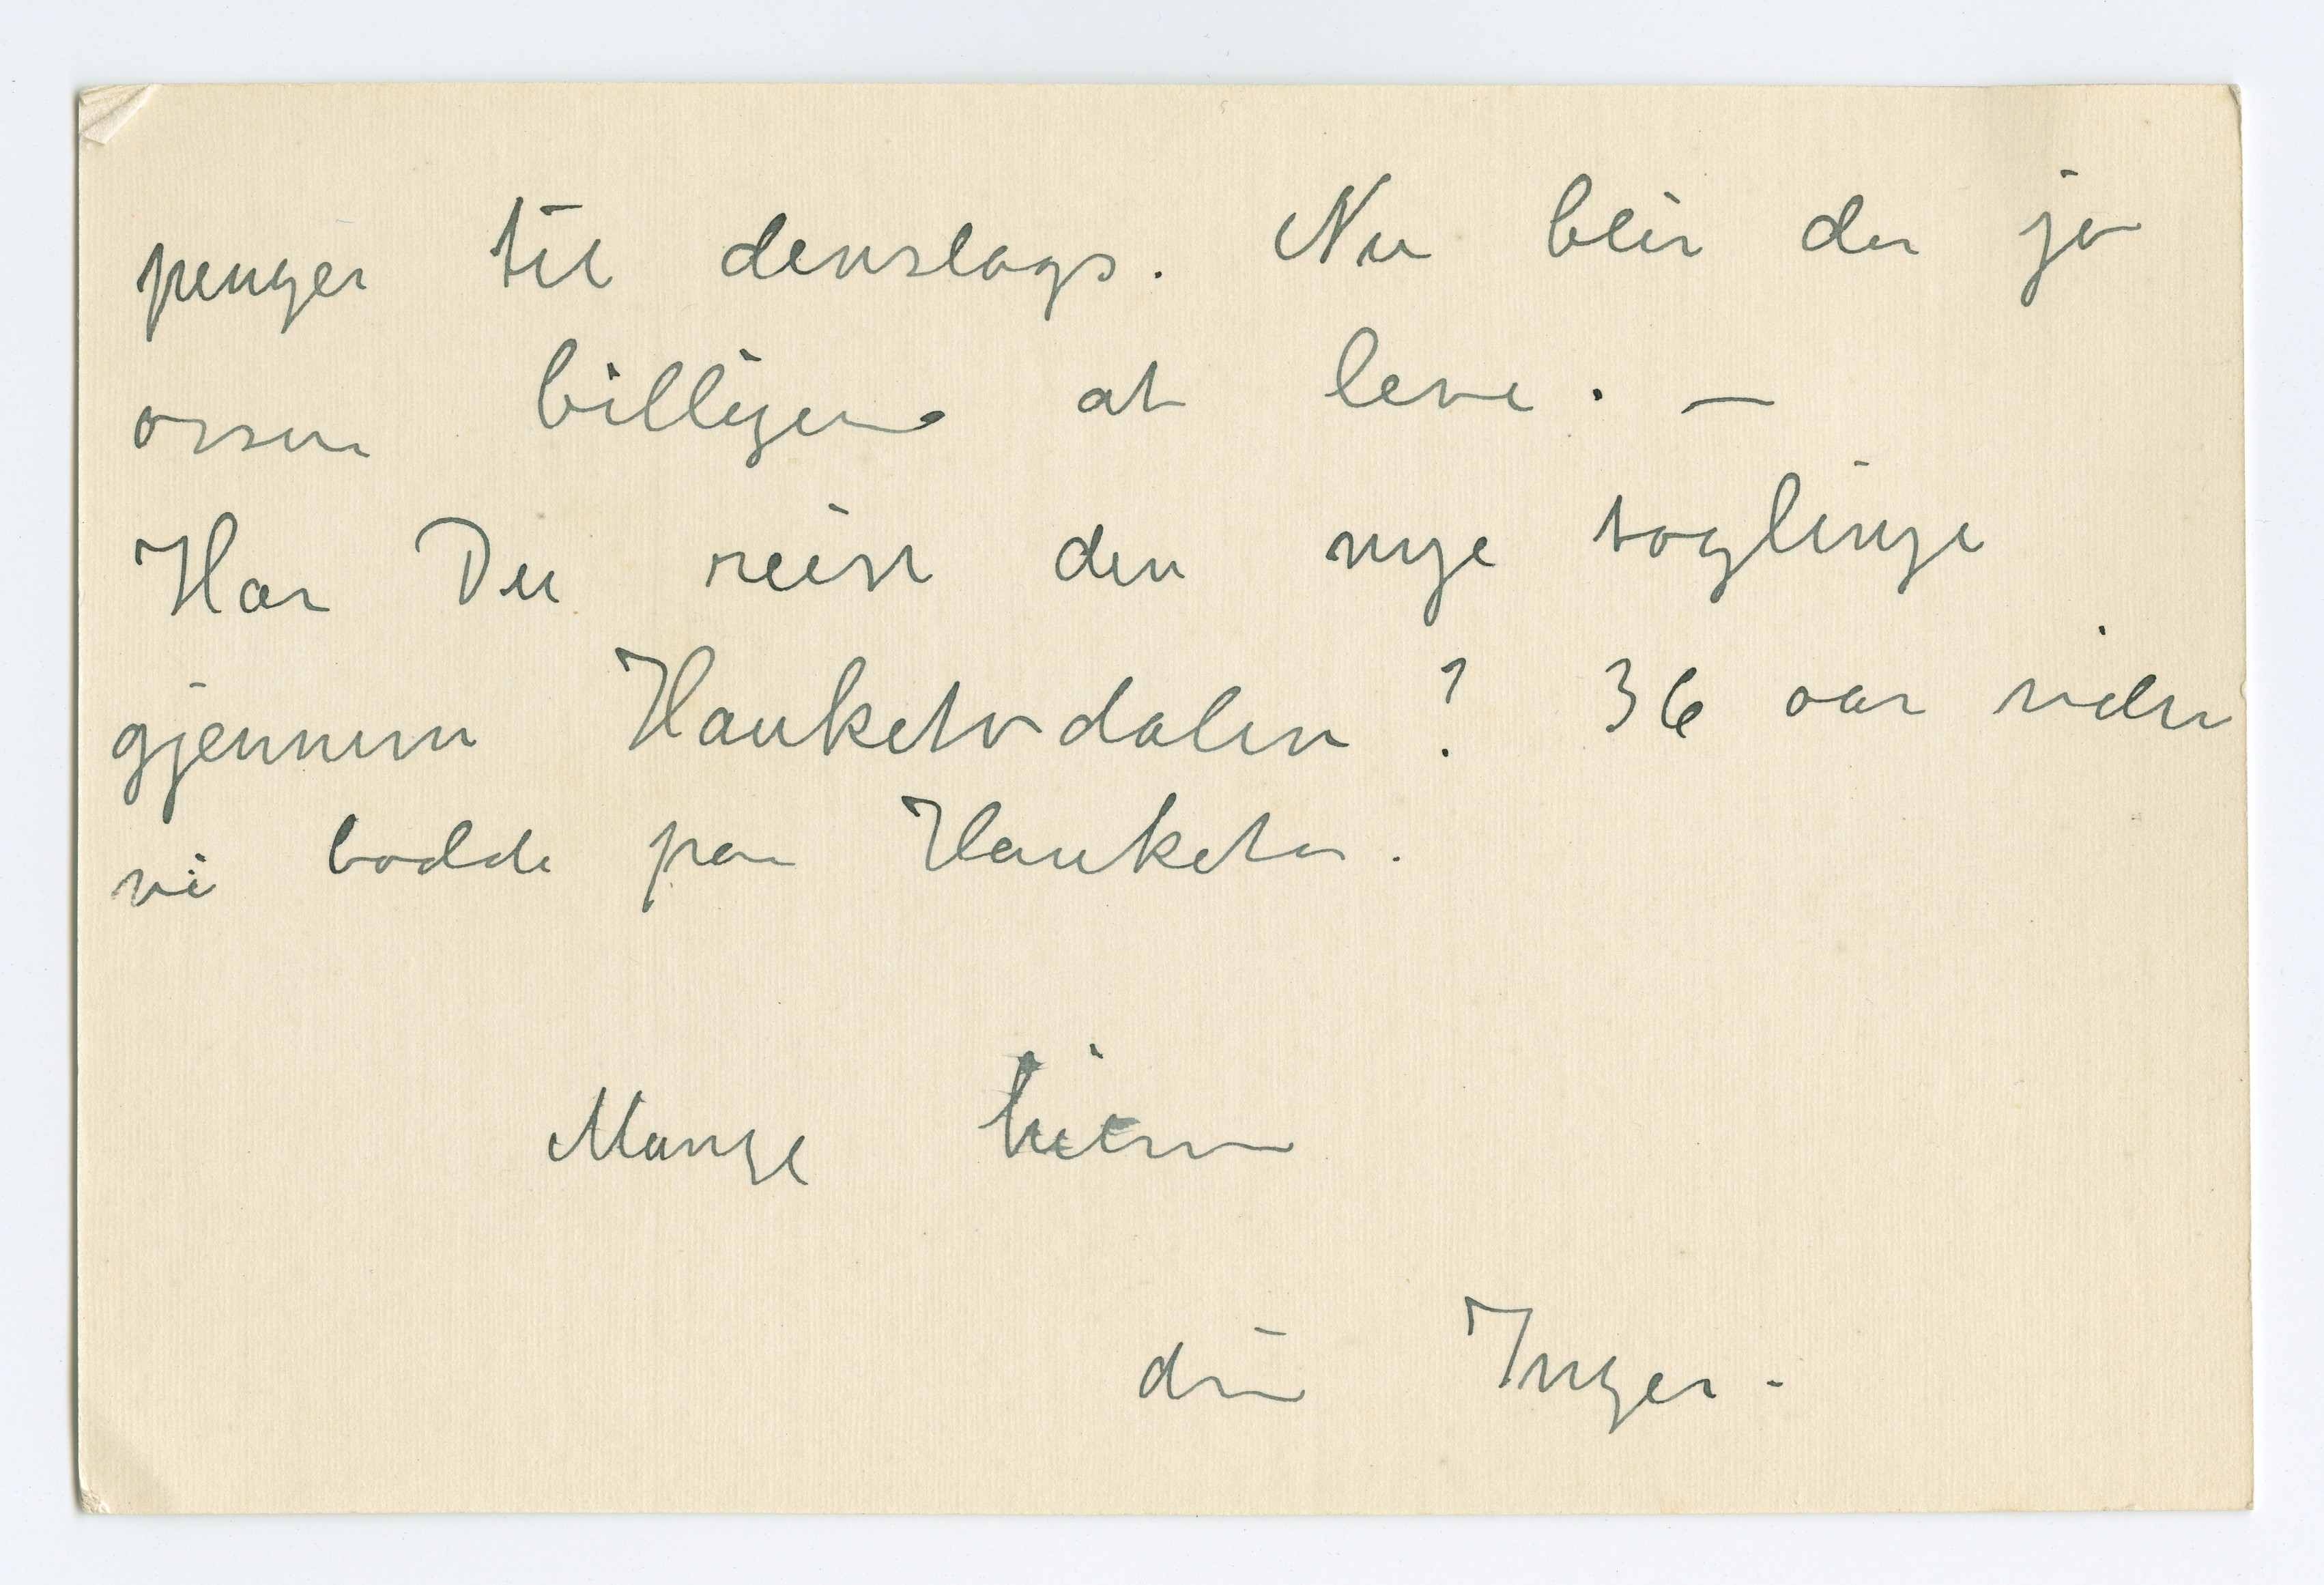 penger til denslags. Nu blir der ja
ossaa billigere at leve. —
Har Du reist den nye toglinje
gjennem Hauketodalen? 36 aar siden
vi bodde paa Hauketo.
Mange hilsn
din Inger.